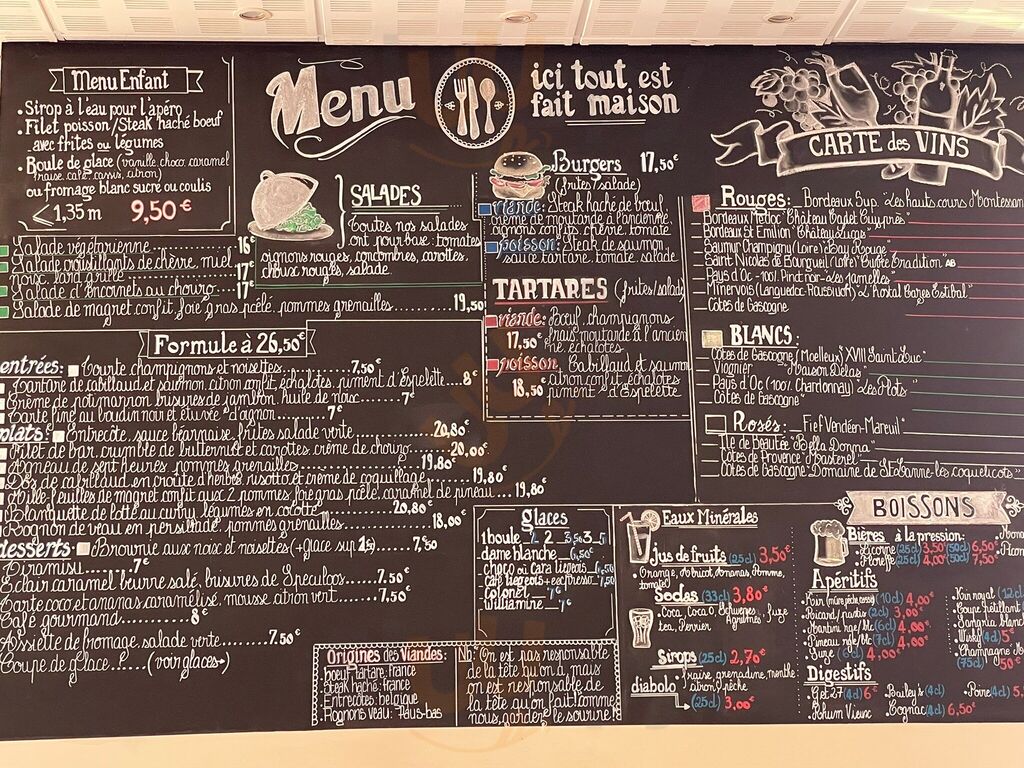 Menu Enfant
• Sirop à l'eau pour l'apéro
• Filet poisson/Steak haché boeuf
avec frites ou légumes
• Boule de glace (vanille, choco, caramel
fraise, café, cassis, citron)
ou fromage blanc sucre ou coulis
< 1,35 m 9,50€
Menu
ici tout est
fait maison
SALADES
Toutes nos salades
ont pour base: tomates
oignons rouges, concombres, carottes,
choux rouges, salade.
Salade végétarienne 16€
Salade croustillants de chèvre, miel
noix, lard grillé 17€
Salade d'encornets au chorizo 17€
Salade de magret confit, foie gras poêlé, pommes grenailles 19,50
Burgers 17,50€
(frites/salade)
viande: Steak haché de boeuf,
crème de moutarde à l'ancienne
oignons confits, chèvre, tomate
poisson: Steak de saumon,
sauce tartare, tomate, salade
TARTARES (frites/salade
viande: Boeuf, champignons
17,50€ frais, moutarde à l'ancien
ne, échalotes
poisson: Cabillaud et saumon
18,50 citron confit, échalotes
piment d'Espelette
Formule à 26,50€
entrées: Tourte champignons et noisettes 7,50€
Tartare de cabillaud et saumon, citron confit, échalotes, piment d'Espelette 8€
Crème de potimarron, brisures de jambon, huile de noix 7€
Tarte fine au boudin noir et étuvée d'oignon 7€
plats: Entrecôte, sauce béarnaise, frites, salade verte 20,80€
Filet de bar, crumble de butternut et carottes, crème de chorizo 20,00€
Agneau de sept heures, pommes grenailles 19,80€
Dos de cabillaud en croûte d'herbes, risotto et crème de coquillage 19,80€
Mille-feuilles de magret confit aux 2 pommes, foie gras poêlé, caramel de pineau 19,80€
Blanquette de lotte au curry, légumes en cocotte 20,80€
Rognon de veau en persillade, pommes grenailles 18,00€
desserts: Brownie aux noix et noisettes (+glace sup 1€) 7,50
Tiramisu 7€
Eclair caramel beurre salé, brisures de Speculoos 7,50€
Tarte coco et ananas caramélisé, mousse citron vert 7,50€
Café gourmand 8€
Assiette de fromage, salade verte 7,50€
Coupe de Glace (voir glaces→)
glaces
1 boule 2 2 3,50 3 5
dame blanche 6,50€
choco ou cara liégeois 6,50
café liégeois + expresso 7,50
colonel 7€
williamine 7€
Origines des Viandes:
boeuf tartare: france
Steak haché: france
Entrecôtes: belgique
Rognons veau: Pays-bas
Nb: On est pas responsable
de la tête qu'on a, mais
on est responsable de
la tête qu'on fait! comme
nous, gardez le sourire!
CARTE des VINS
Rouges: Bordeaux Sup. "Les hauts cours Montessan
Bordeaux Médoc "Château Cadet
Bordeaux St Emilion "Château
Saumur Champigny (Loire) "Bay Rouge
Saint Nicolas de Bourgueil (Loire) "Cuvée Tradition" AB
Pays d'Oc - 100% Pinot noir "Les Jamelles
Minervois (Languedoc-Roussillon) "L'Hostal Cazes Estibal"
Côtes de Gascogne
BLANCS:
Côtes de Gascogne (Moelleux) "XVIII Saint Luc"
Viognier "Maison Delas"
Pays d'Oc (100% Chardonnay) "Les Plots"
Côtes de Gascogne"
Rosés: Fief Vendéen-Mareuil
Île de Beautée "Bella Donna"
Côtes de Provence
Côtes de Gascogne "Domaine de St Lanne-les coquelicots"
BOISSONS
Eaux Minérales
jus de fruits (25cl) 3,50€
• Orange, Abricot, Ananas, Pomme,
tomate)
Sodas (33cl) 3,80€
• Coca, Coca 0, Schweppes Agrumes, Fuze
tea, Perrier
Sirops (25cl) 2,70€
• Fraise, grenadine, menthe
citron, pêche
diabolo
(25cl) 3,00€
Bières à la pression:
• Licorne (25cl) 3,50€ (50cl) 6,50€
(25cl) 4,00€ (50cl) 7,50€
Apéritifs
• Kir (mûre, pêche, cassis) (10cl) 4,00€
• Ricard/pastis (2cl) 3,00€
• Martini rge/blc (6cl) 4,00€
• Pineau rge/blc (7cl) 4,00€
• Suze 4,00€
Kir royal (12cl)
Coupe Pétillant
Sangria blanc
Wisky (4cl) 5€
• Champagne
(75cl) 50€
Digestifs
• Get 27 (4cl) 6€
• Rhum Vieux
• Bailey's (4cl)
• Cognac (4cl) 6,50€
• Poire (4cl) 5,